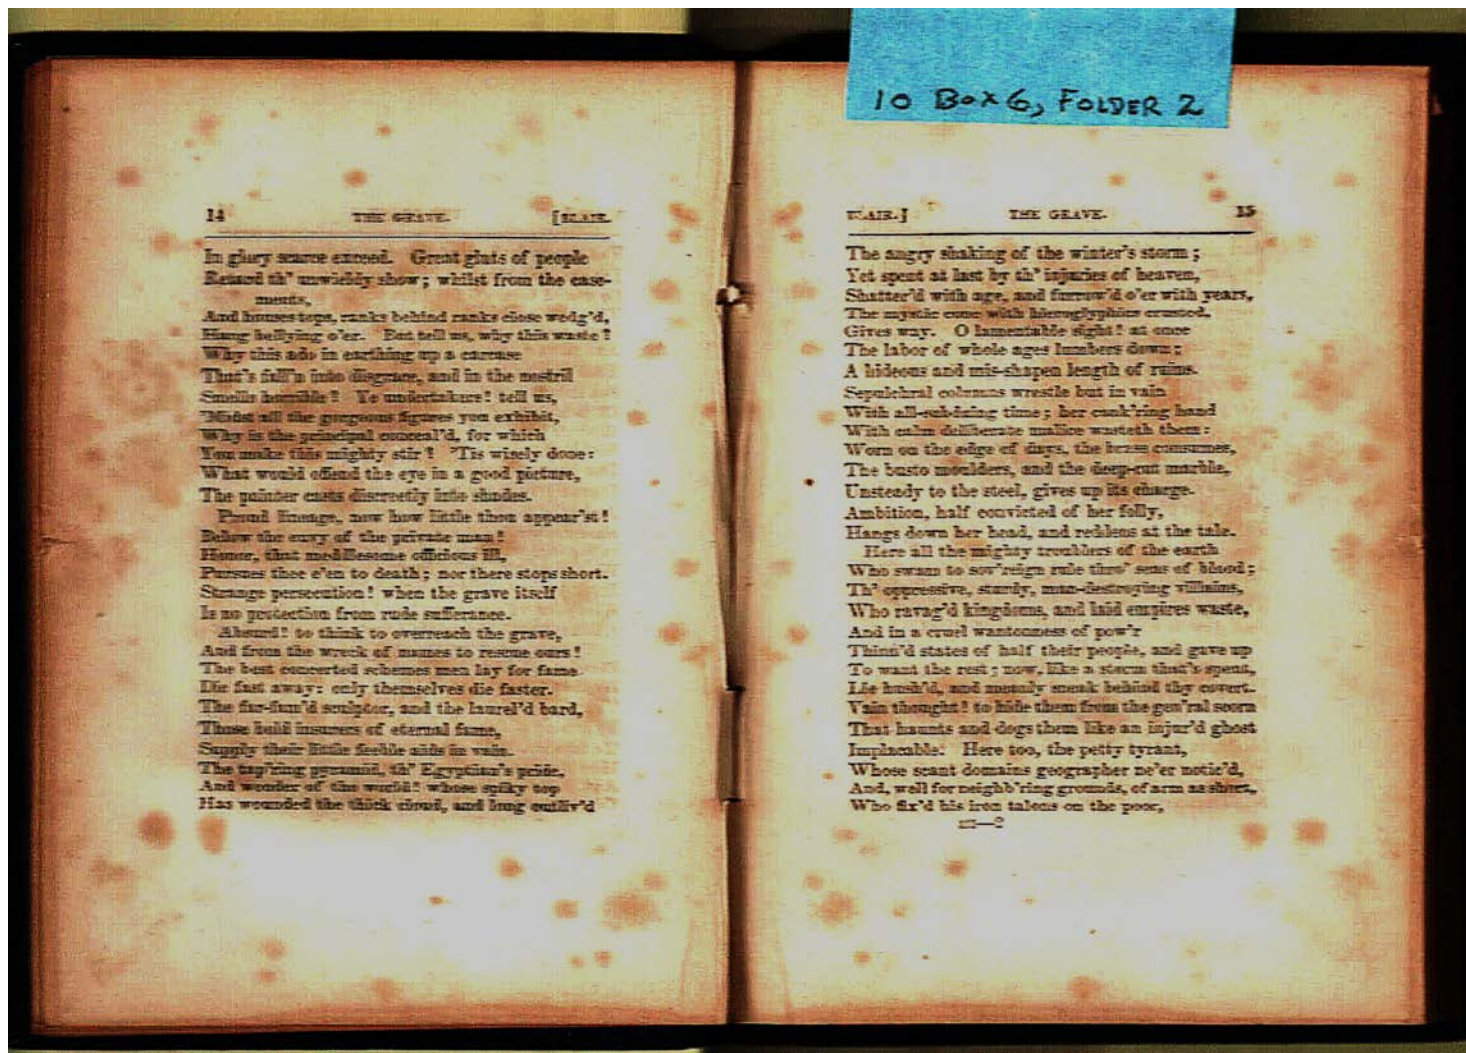 10 Box 6, FOLDER 2
14 THE GRAVE. [BLAIR.
In glory scarce exceed. Great gluts of people
Retard th' unwieldy show; whilst from the case-
ments,
And houses tops, ranks behind ranks close wedg'd,
Hang bellying o'er. But tell us, why this waste?
Why this ado in earthing up a carcase
That's fall'n into disgrace, and in the nostril
Smells horrible? Ye undertakers! tell us,
'Midst all the gorgeous figures you exhibit,
Why is the principal conceal'd, for which
You make this mighty stir? 'Tis wisely done:
What would offend the eye in a good picture,
The painter casts discreetly into shades.
Proud lineage, now how little thou appear'st!
Below the envy of the private man!
Honor, that meddlesome officious ill,
Pursues thee e'en to death; nor there stops short.
Strange persecution! when the grave itself
Is no protection from rude sufferance.
Absurd! to think to overreach the grave,
And from the wreck of names to rescue ours!
The best concerted schemes men lay for fame
Die fast away: only themselves die faster.
The far-fam'd sculptor, and the laurel'd bard,
Those bold insurers of eternal fame,
Supply their little feeble aids in vain.
The tap'ring pyramid, th' Egyptian's pride,
And wonder of the world! whose spiky top
Has wounded the thick cloud, and long outliv'd
BLAIR.] THE GRAVE. 15
The angry shaking of the winter's storm;
Yet spent at last by th' injuries of heaven,
Shatter'd with age, and furrow'd o'er with years,
The mystic cone with hieroglyphics crusted,
Gives way. O lamentable sight! at once
The labor of whole ages lumbers down;
A hideous and mis-shapen length of ruins.
Sepulchral columns wrestle but in vain
With all-subduing time; her cank'ring hand
With calm deliberate malice wasteth them:
Worn on the edge of days, the brass consumes,
The busto moulders, and the deep-cut marble,
Unsteady to the steel, gives up its charge.
Ambition, half convicted of her folly,
Hangs down her head, and reddens at the tale.
Here all the mighty troublers of the earth
Who swam to sov'reign rule thro' seas of blood;
Th' oppressive, sturdy, man-destroying villains,
Who ravag'd kingdoms, and laid empires waste,
And in a cruel wantonness of pow'r
Thinn'd states of half their people, and gave up
To want the rest; now, like a storm that's spent,
Lie hush'd, and meanly sneak behind thy covert.
Vain thought! to hide them from the gen'ral scorn
That haunts and dogs them like an injur'd ghost
Implacable. Here too, the petty tyrant,
Whose scant domains geographer ne'er notic'd,
And, well for neighb'ring grounds, of arm as short,
Who fix'd his iron talons on the poor,